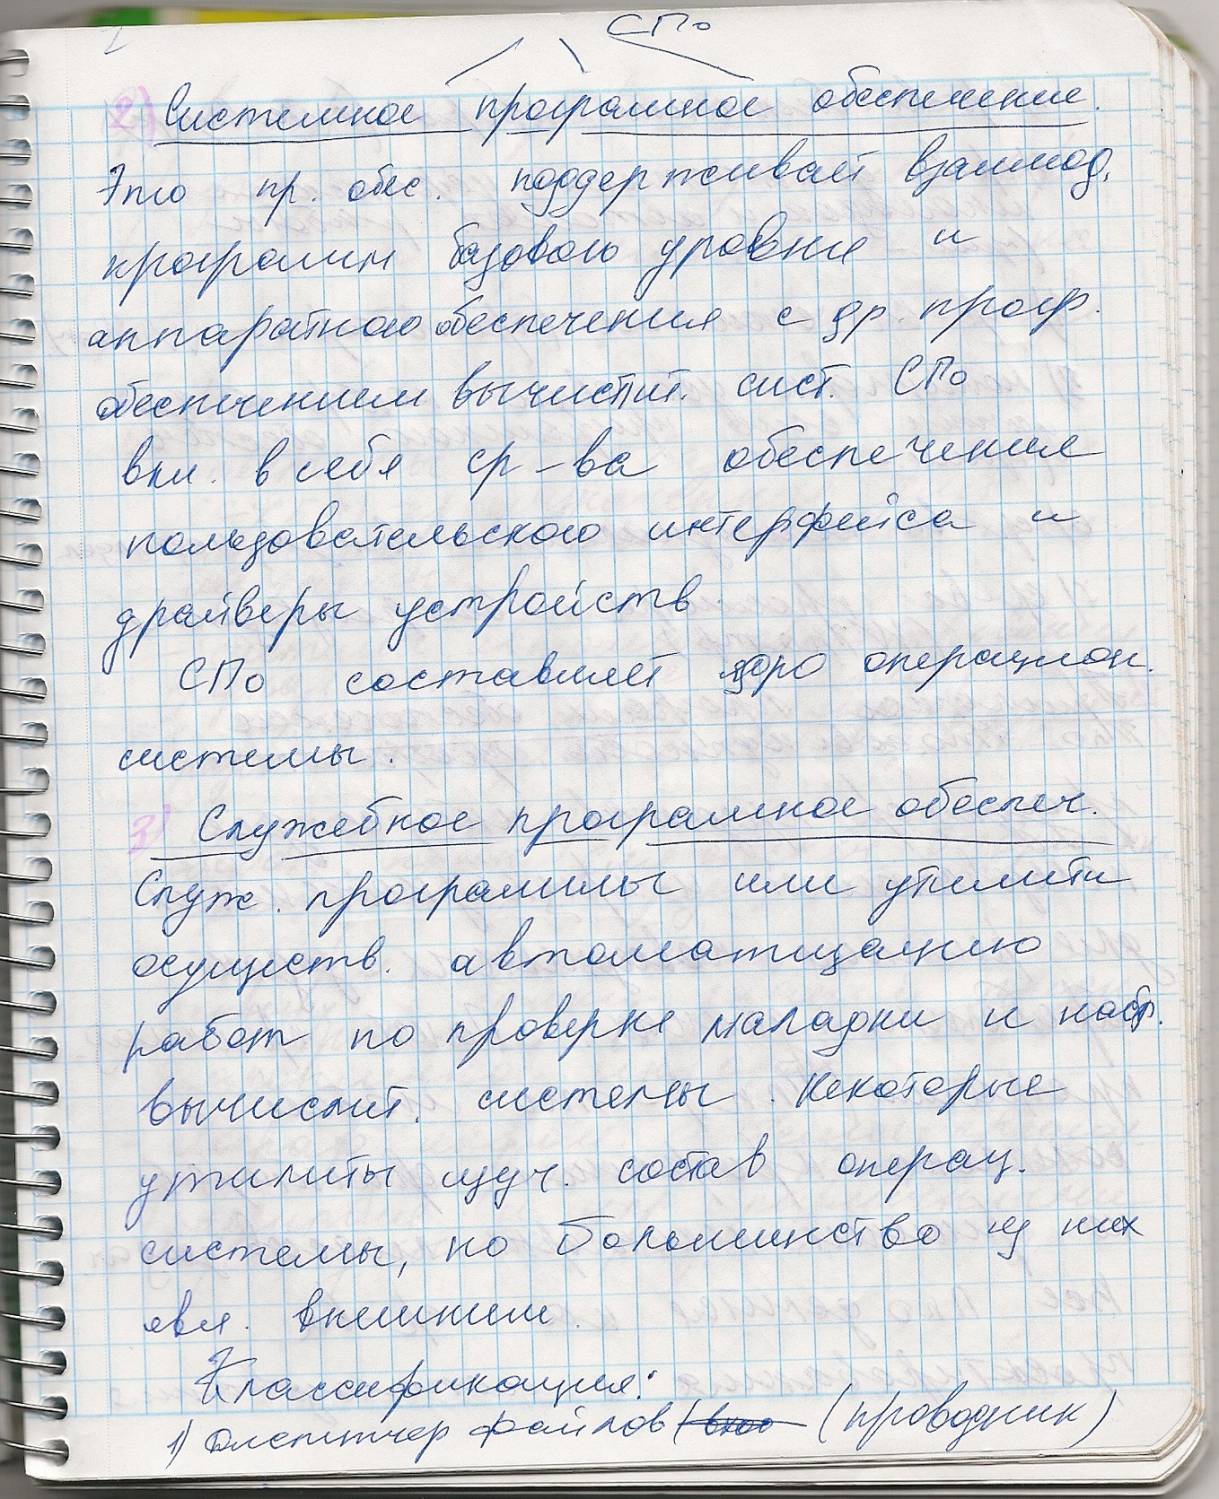 СПо
2) Системное програмное обеспечение.
Это пр. обес. поддерживает взаимод.
программ базового уровня и
аппаратного обеспечения с др. прогр.
обеспечением вычислит. сист. СПо
вкл. в себя ср-ва обеспечения
пользовательского интерфейса и
драйверы устройств.
СПо составляет ядро операцион.
системы.
3) Служебное програмное обеспеч.
Служ. программы или утилиты
осуществ. автоматизацию
работ по проверке наладки и настр.
вычислит. системы. Некоторые
утилиты изуч. состав операц.
системы, но большинство из них
явл. внешним.
Классификация:
1) Диспетчер файлов (проводник)